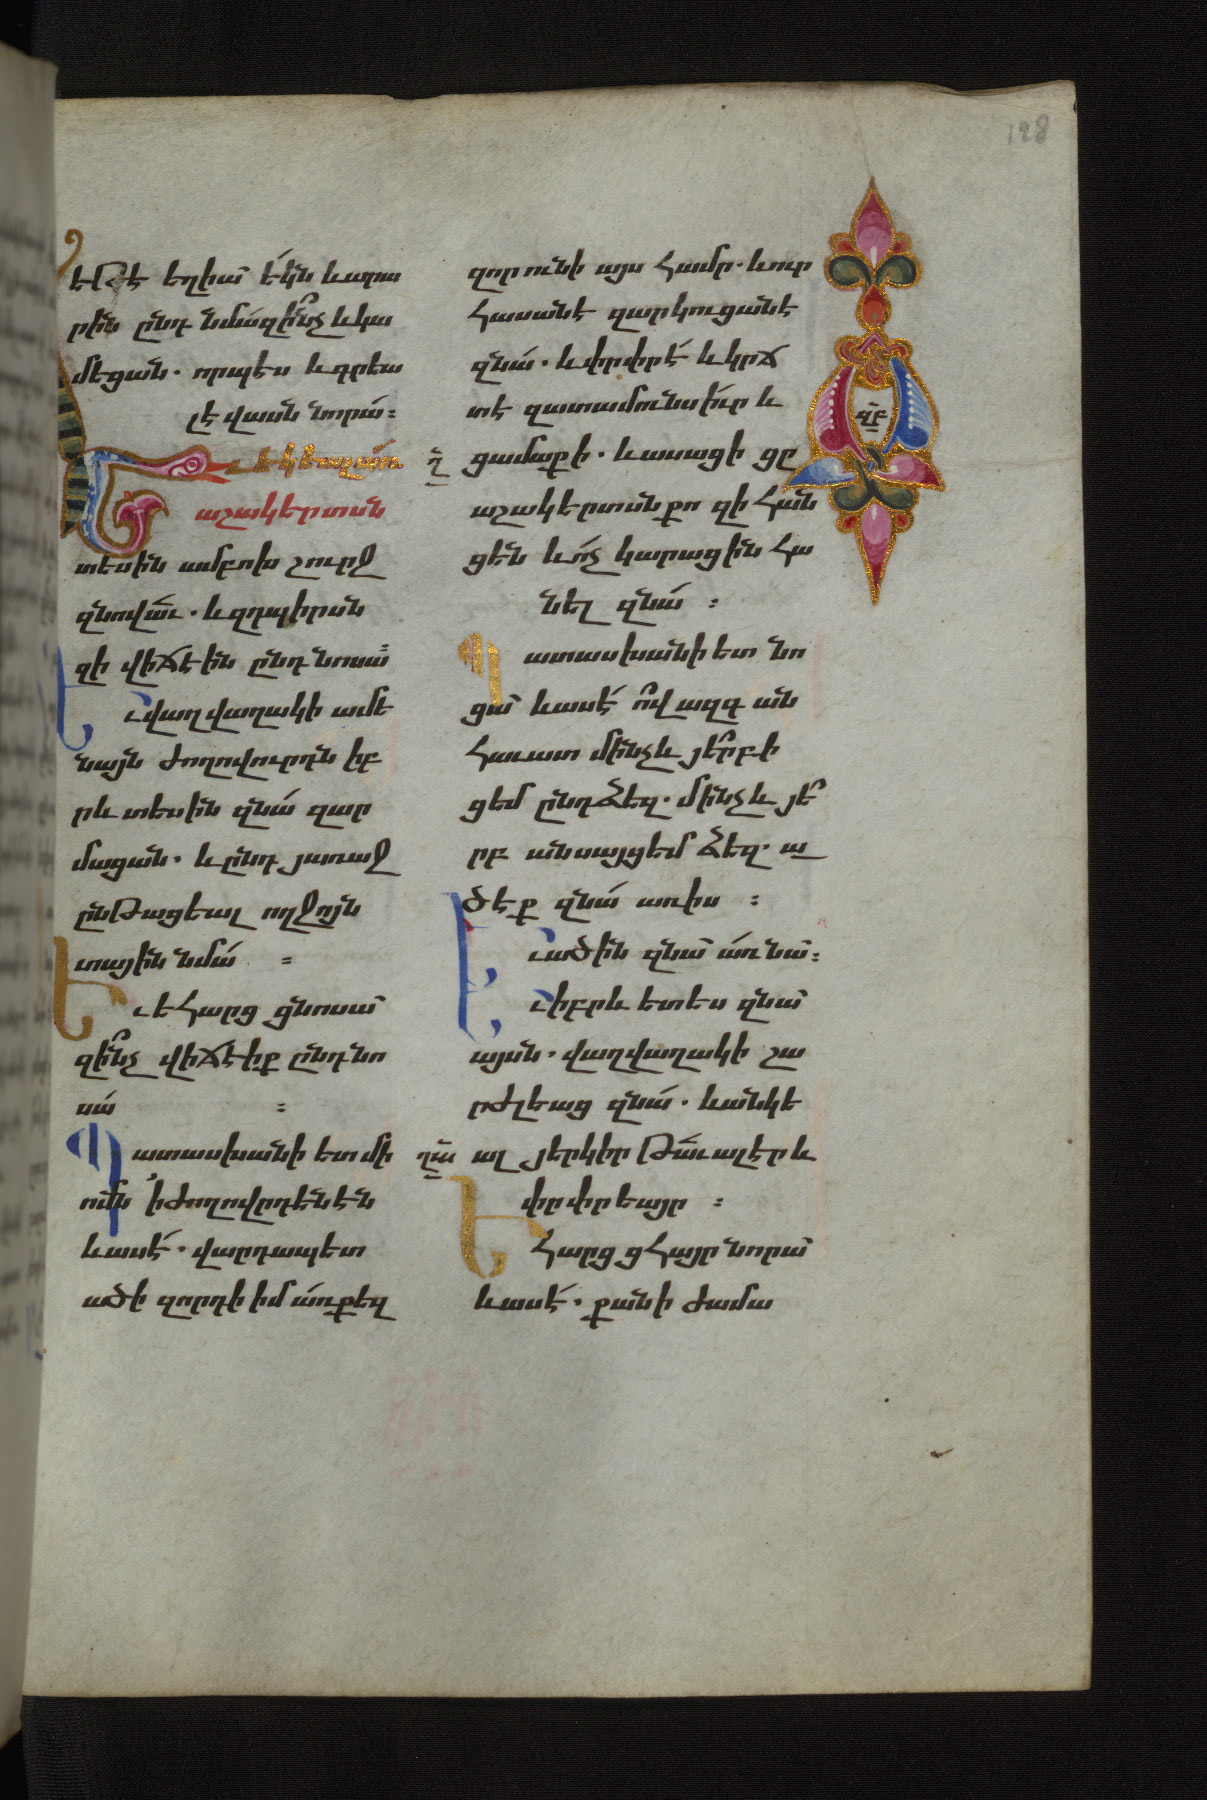 է թէ եղիա՛ եկն և արա
րին ընդ նմա զի՞նչ և կա
մեցան. որպէս և գրեա
լ է վասն նորա։
Եւ եկեալ առ
աշակերտսն
տեսին ամբոխ շուրջ
զնովաւ. և զդպիրսն
զի վիճէին ընդ նոսա։
Եւ վաղվաղակի ամե
նայն ժողովուրդն իբ
րև տեսին զնա զար
մացան. և ընդ յառաջ
ընթացեալ ողջոյն
տային նմա ։
Եւ եհարց ցնոսա
զի՞նչ վիճէիք ընդ նո
սա ։
Պատասխանի ետ մի
ոմն ՛ի ժողովրդենէն
և ասէ. վարդապետ
ածի զորդի իմ առ քեզ
զոր ունի այս համր. և ուր
հասանէ զարկուցանէ
զնա. և փրփրէ և կրճ
տէ զատամունս իւր և
ղ ցամաքի. և ասացի ցը
աշակերտսն քո զի հան
ցեն և ոչ կարացին հա
նել զնա ։
Պատասխանի ետ նո
ցա և ասէ ո՛վ ազգ ան
հաւատ մինչև յե՞րբ ի
ցեմ ընդ ձեզ. մինչև յե՞
րբ անսայցեմ ձեզ. ա
ծէք զնա առ իս ։
Եւ ածին զնա առ նա։
Եւ իբրև ետես զնա
այսն. վաղվաղակի շա
րժլեաց զնա. և անկե
ղա ալ յերկիր թաւալէր և
փրփրեայր ։
Եհարց ցհայր նորա
և ասէ. քանի ժամա
զբ
128